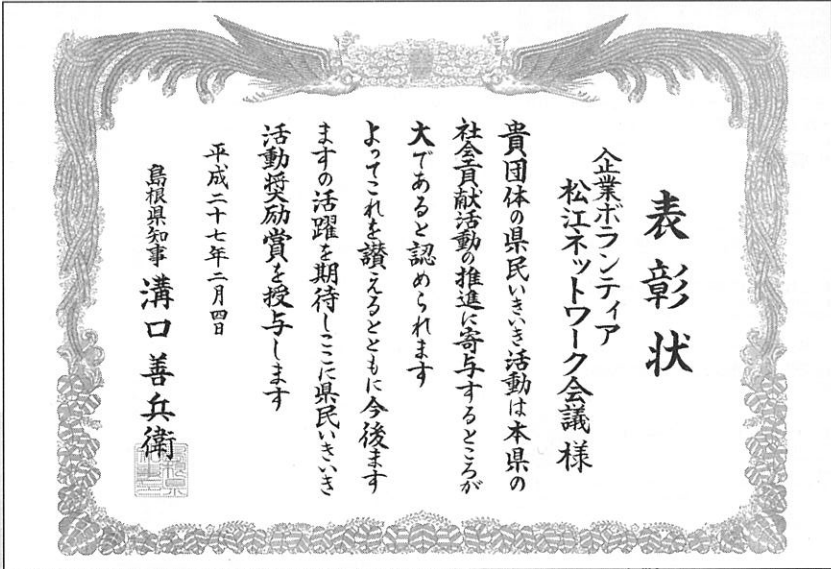 表彰状
企業ボランティア
松江ネットワーク会議様
貴団体の県民いきいき活動は本県の
社会貢献活動の推進に寄与するところが
大であると認められます
よってこれを讃えるとともに今後ます
ますの活躍を期待しここに県民いきいき
活動奨励賞を授与します
平成二十七年二月四日
島根県知事 溝口善兵衛